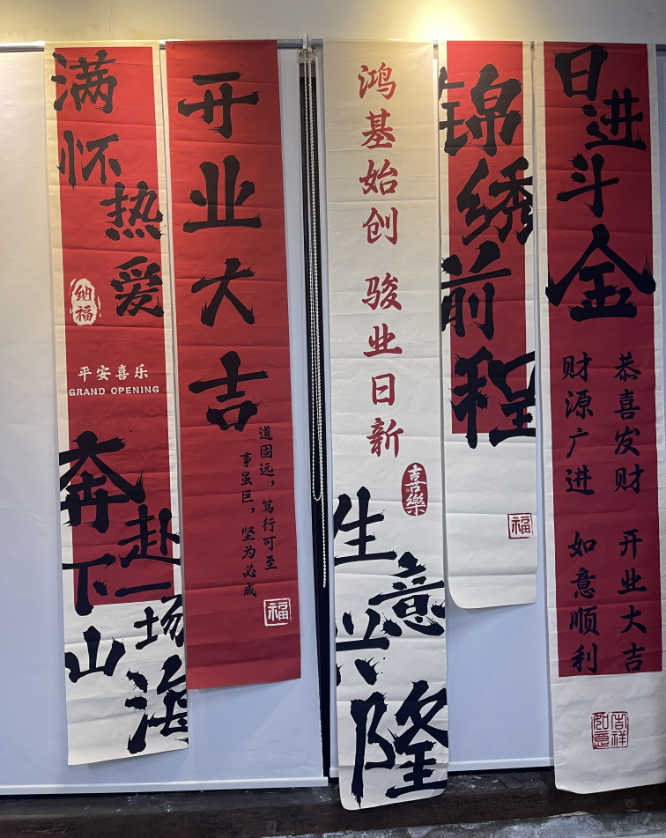 满怀热爱
纳福
平安喜乐
GRAND OPENING
奔赴
下一场
山海
开业大吉
道固远，笃行可至
事虽巨，坚为必成
福
鸿基始创 骏业日新
喜樂
生意兴隆
锦绣前程
福
日进斗金
恭喜发财 开业大吉
财源广进 如意顺利
吉祥
如意